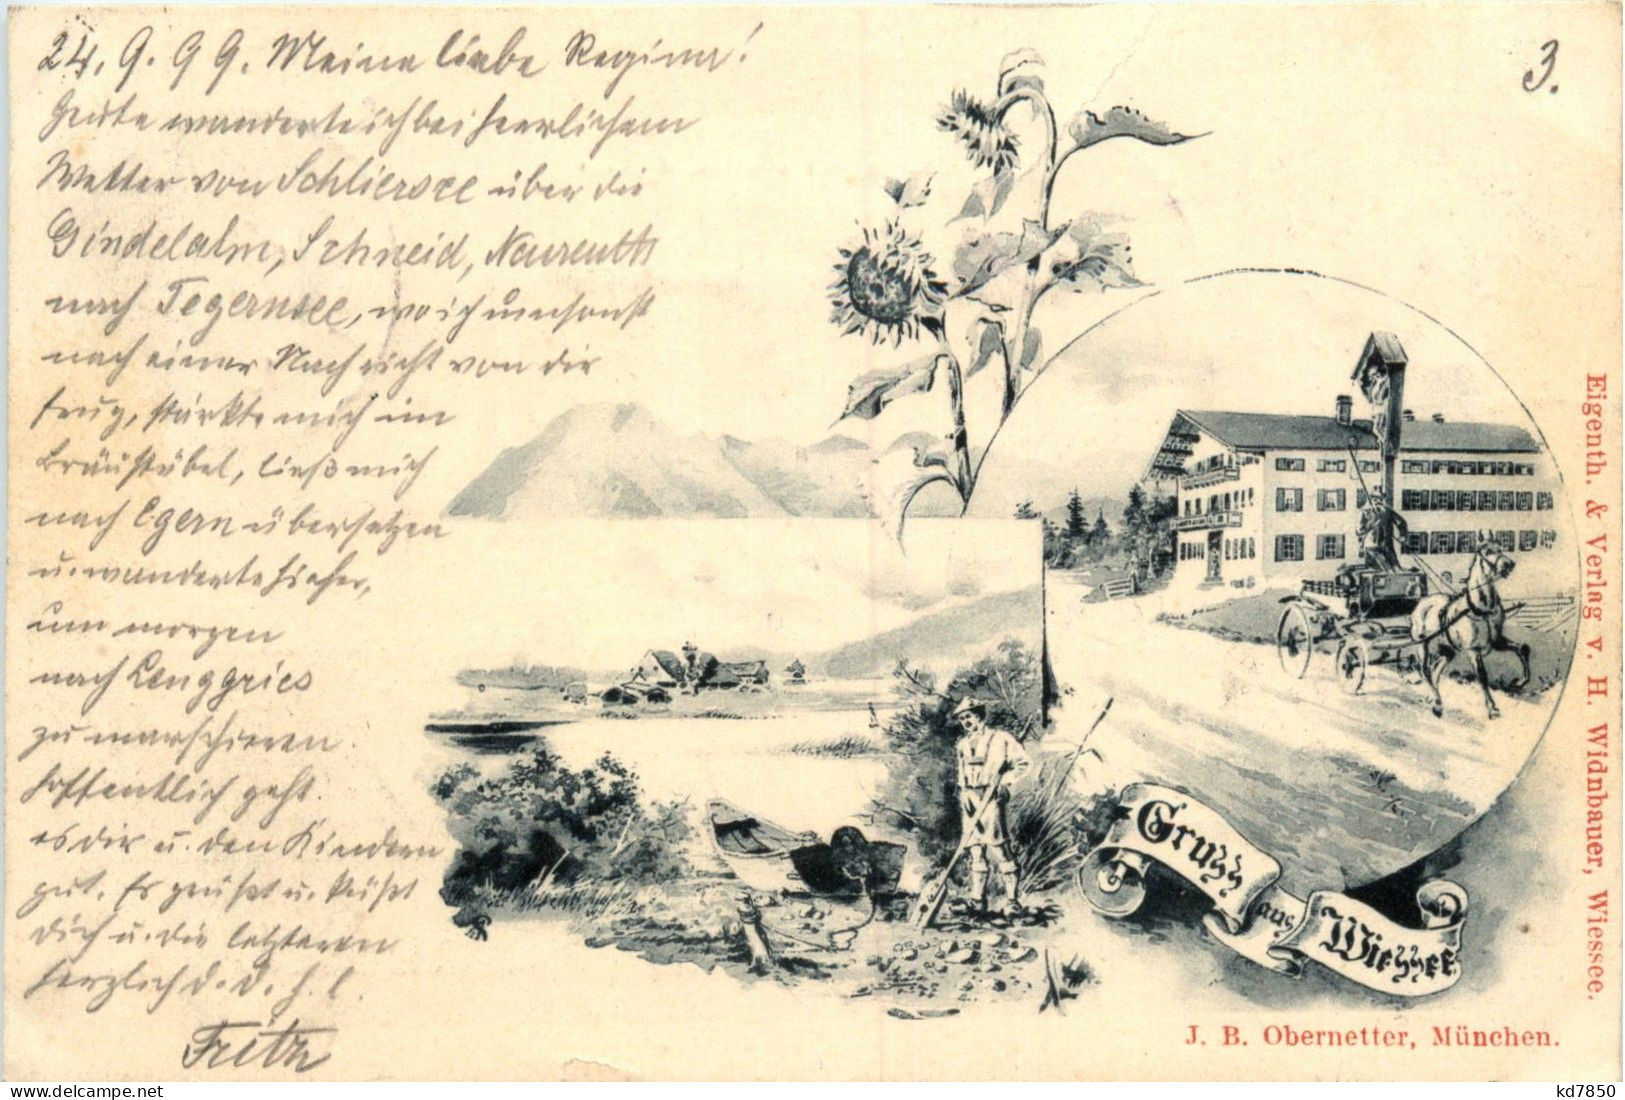 24. 9. 99. Meine liebe Regina!
3.
Heute wanderte ich bei herrlichem
Wetter von Schliersee über die
Gindelalm, Schneid, Neureuth
nach Tegernsee, wo ich umsonst
nach einer Nachricht von dir
frug, stärkte mich im
Bräustübel, ließ mich
nach Egern übersetzen
u. wanderte hieher,
um morgen
nach Lenggries
zu marschieren.
Hoffentlich geht
es dir u. den Kindern
gut. Es grüßt u. küßt
dich u. die letzteren
herzlich d. d. h. l.
Fritz
Gruss
aus
Wiessee
J. B. Obernetter, München.
Eigenth. & Verlag v. H. Widnbauer, Wiessee.
kd7850